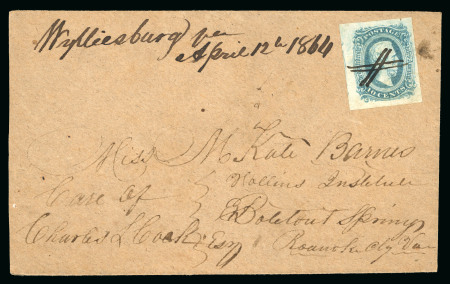 Wylliesburg va
April 12th 1864
POSTAGE
TEN CENTS
Miss M Kate Barnes
Care of Hollins Institute
Botetout Springs
Charles L Cocke Esq
Roanoke Cty Va